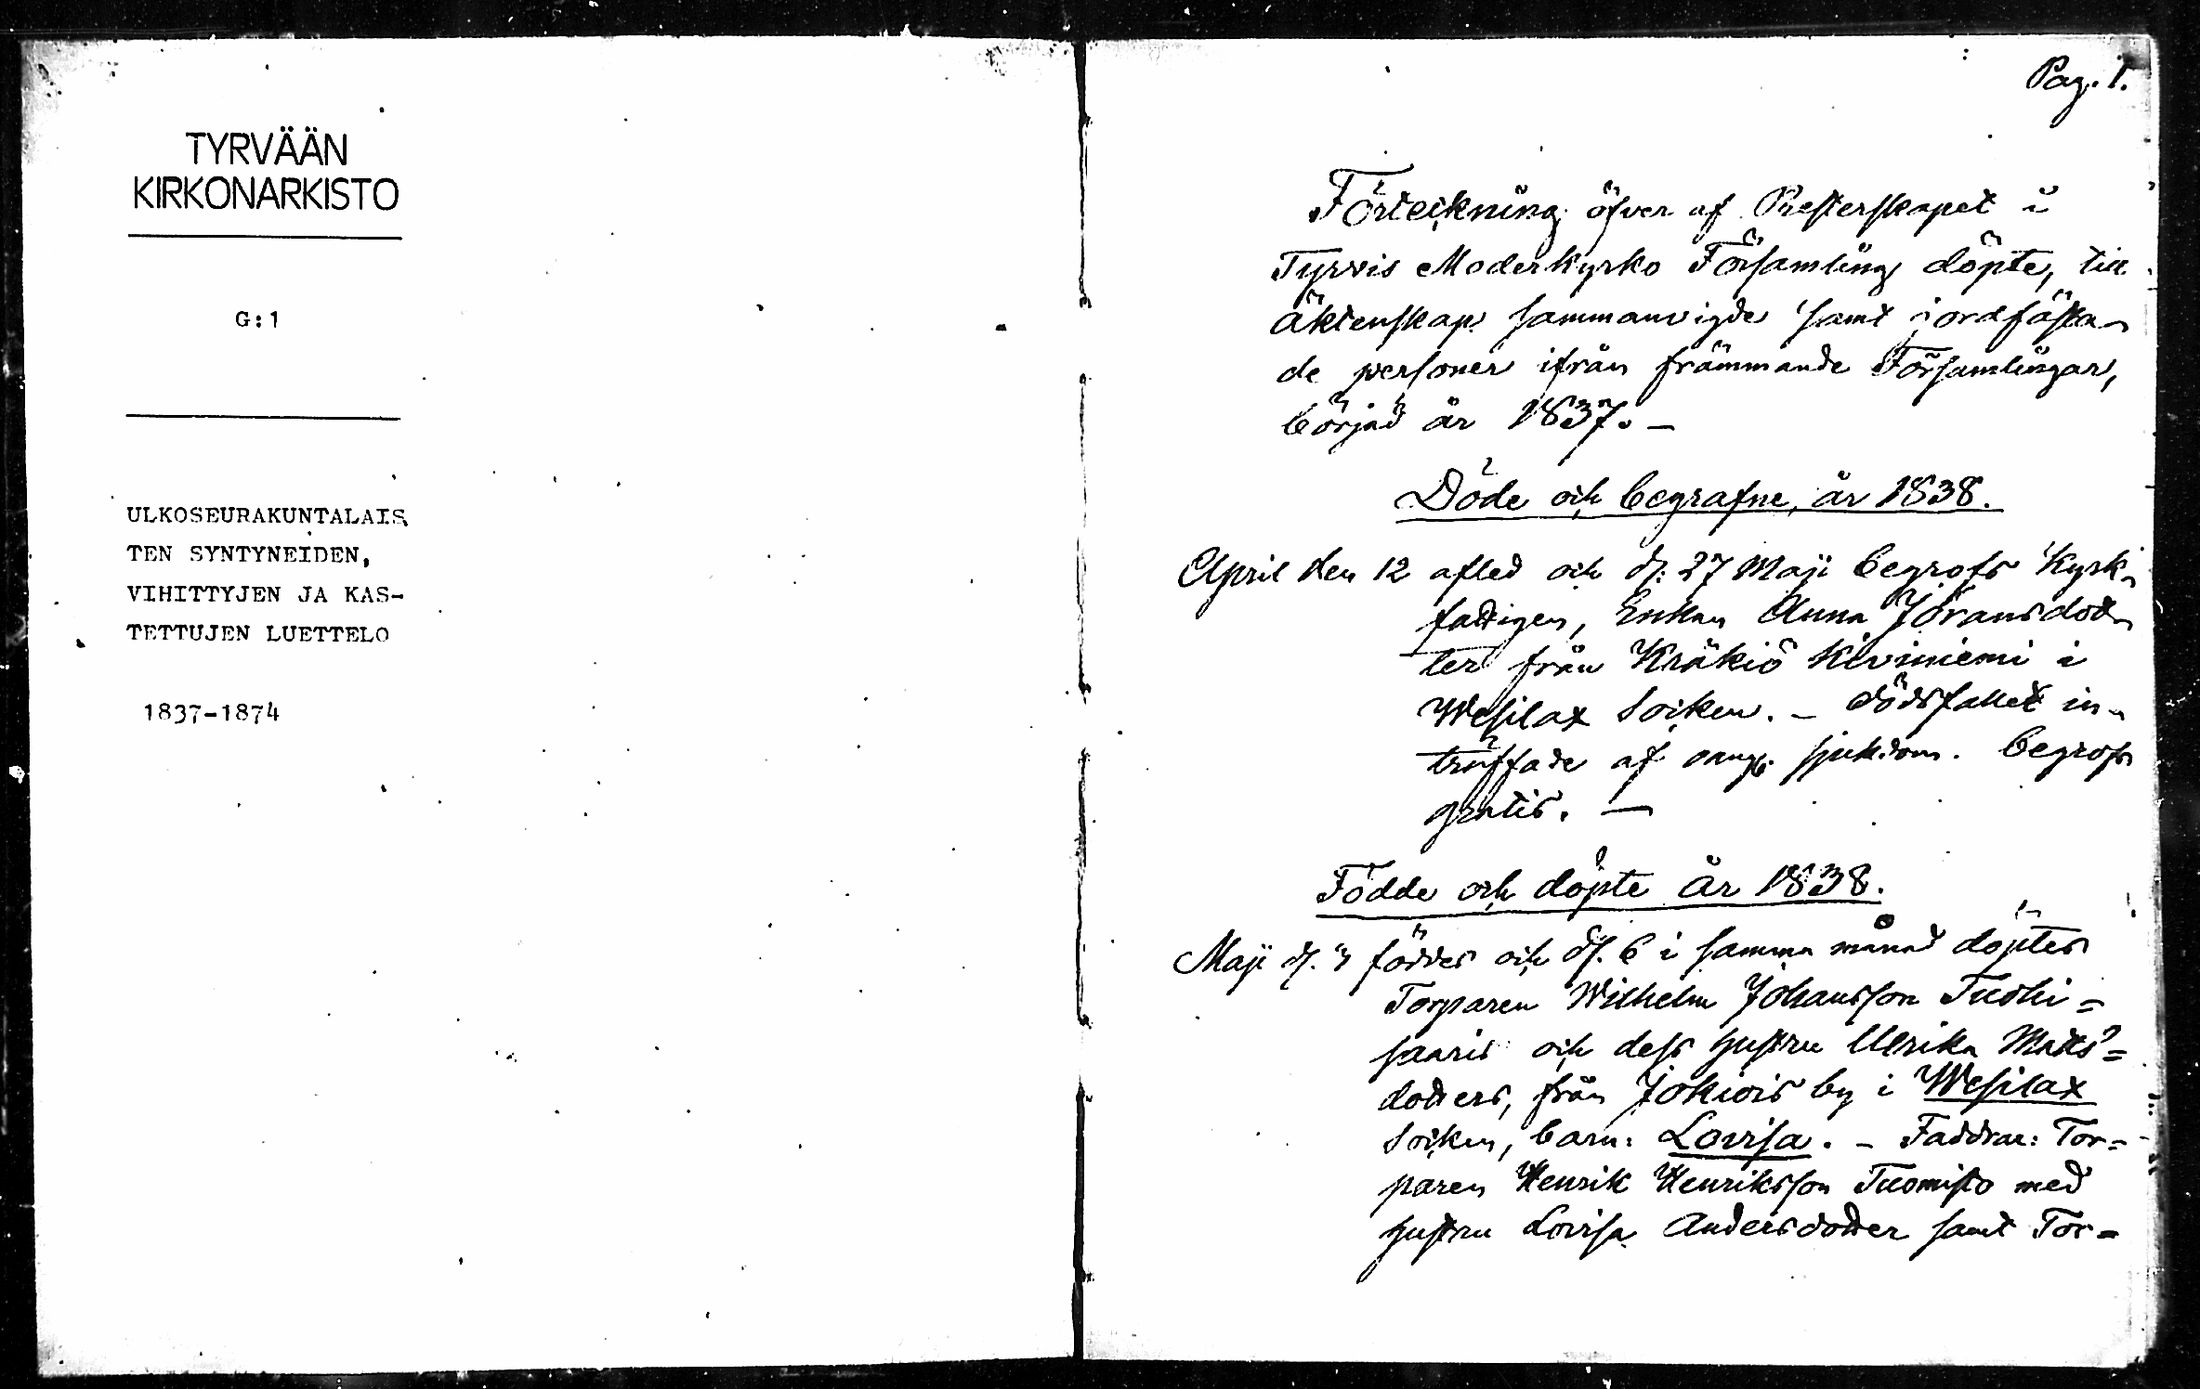 TYRVÄÄN
KIRKONARKISTO
G:1
ULKOSEURAKUNTALAIS
TEN SYNTYNEIDEN,
VIHITTYJEN JA KAS-
TETTUJEN LUETTELO
1837-1874
Pag. 1.
Förteckning öfver af Presterskapet i
Tyrvis Moderkyrko Församling döpte, till
äktenskap sammanvigde samt jordfästa-
de personer ifrån främmande Församlingar,
börjad år 1837. -
Döde och begrafne, år 1838.
April den 12 afled och d. 27 Maji begrofs Kyrk-
fattigen, Enkan Anna Jöransdot-
ter från Kräkiö Kiviniemi i
Wesilax Socken. - Dödsfallet in-
träffade af sjukdom. begrofs
gratis. -
Födde och döpte år 1838.
Maji d. 3 föddes och d. 6 i samma månad döptes
Torparen Wilhelm Johansson Tuohi=
saaris och dess hustru Ulrika Matts=
dotters, från Jokiois by i Wesilax
Socken, barn: Lovisa. - Faddrar: Tor=
paren Henrik Henriksson Tuomisto med
hustru Lovisa Andersdotter samt Tor=